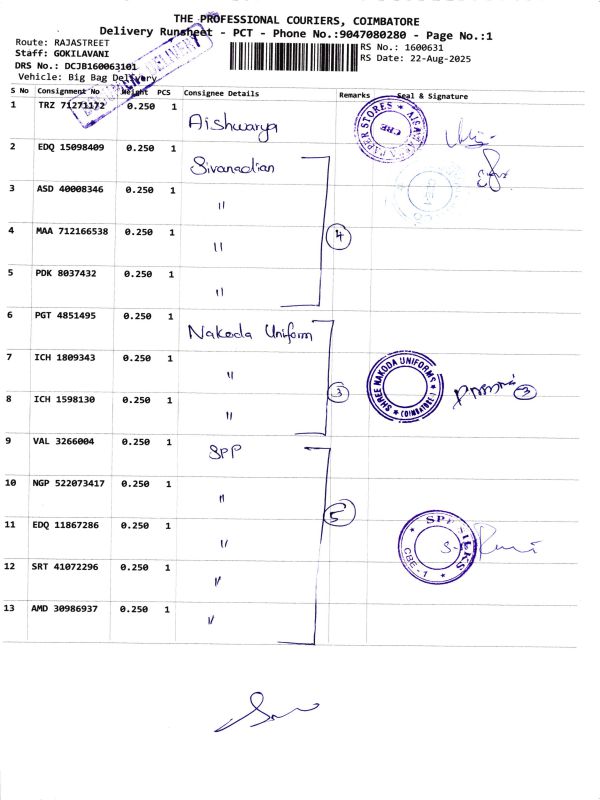 THE PROFESSIONAL COURIERS, COIMBATORE
Delivery Runsheet - PCT - Phone No.:9047080280 - Page No.:1
Route: RAJASTREET
Staff: GOKILAVANI
DRS No.: DCJB160063101
Vehicle: Big Bag Delivery
RS No.: 1600631
RS Date: 22-Aug-2025
S No Consignment No Weight PCS Consignee Details Remarks Seal & Signature
1 TRZ 71271172 0.250 1 Aishwarya
2 EDQ 15098409 0.250 1 Sivanadian
3 ASD 40008346 0.250 1 "
4 MAA 712166538 0.250 1 " 4
5 PDK 8037432 0.250 1 "
6 PGT 4851495 0.250 1 Nakoda Uniform
7 ICH 1809343 0.250 1 "
8 ICH 1598130 0.250 1 " 3
9 VAL 3266004 0.250 1 SPP
10 NGP 522073417 0.250 1 "
11 EDQ 11867286 0.250 1 " 5
12 SRT 41072296 0.250 1 "
13 AMD 30986937 0.250 1 "
PAPER STORES
CBE
SHREE NAKODA UNIFORMS
(COIMBATORE)
3
SPP SILKS
CBE - 1